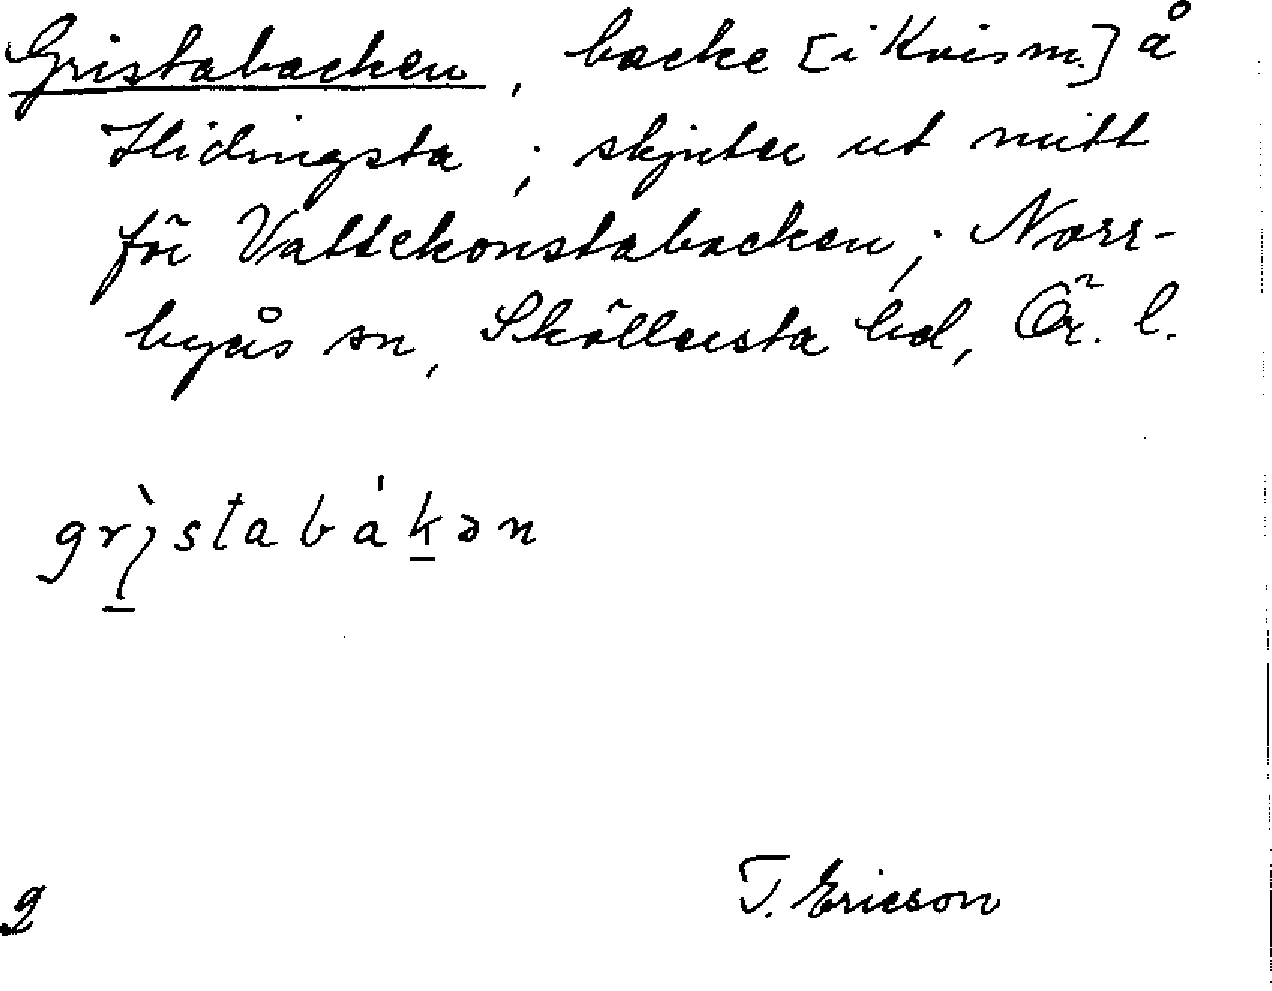 Gristabacken, backe [i Kvism.] å
Hidingsta; skjuter ut mitt
för Vattekonstabacken; Norr-
byås sn, Sköllersta hd, Ör. l.
gri̱stabáḵən
2
T. Ericson